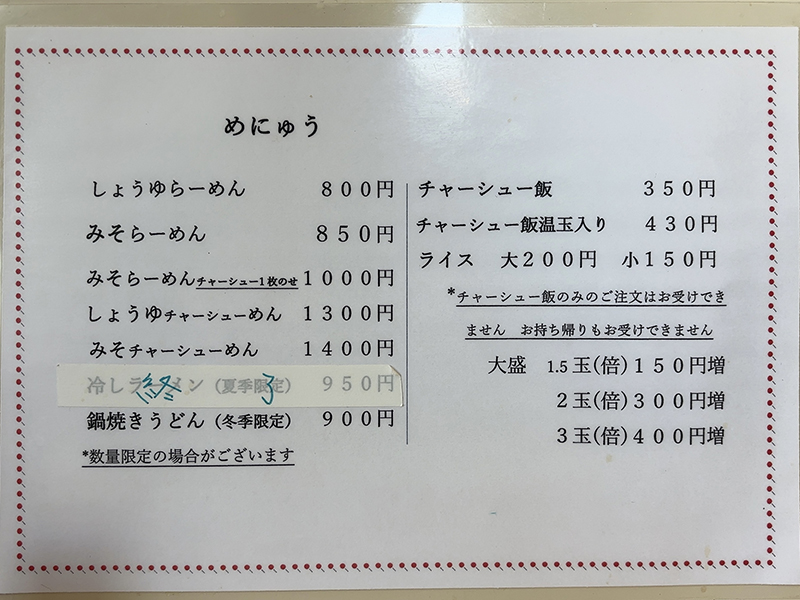 めにゅう
しょうゆらーめん ８００円
みそらーめん ８５０円
みそらーめんチャーシュー1枚のせ １０００円
しょうゆチャーシューめん １３００円
みそチャーシューめん １４００円
冷しラーメン（夏季限定） ９５０円
終了
鍋焼きうどん（冬季限定） ９００円
*数量限定の場合がございます
チャーシュー飯 ３５０円
チャーシュー飯温玉入り ４３０円
ライス 大２００円 小１５０円
*チャーシュー飯のみのご注文はお受けでき
ません お持ち帰りもお受けできません
大盛 1.5 玉(倍)１５０円増
２玉(倍)３００円増
３玉(倍)４００円増